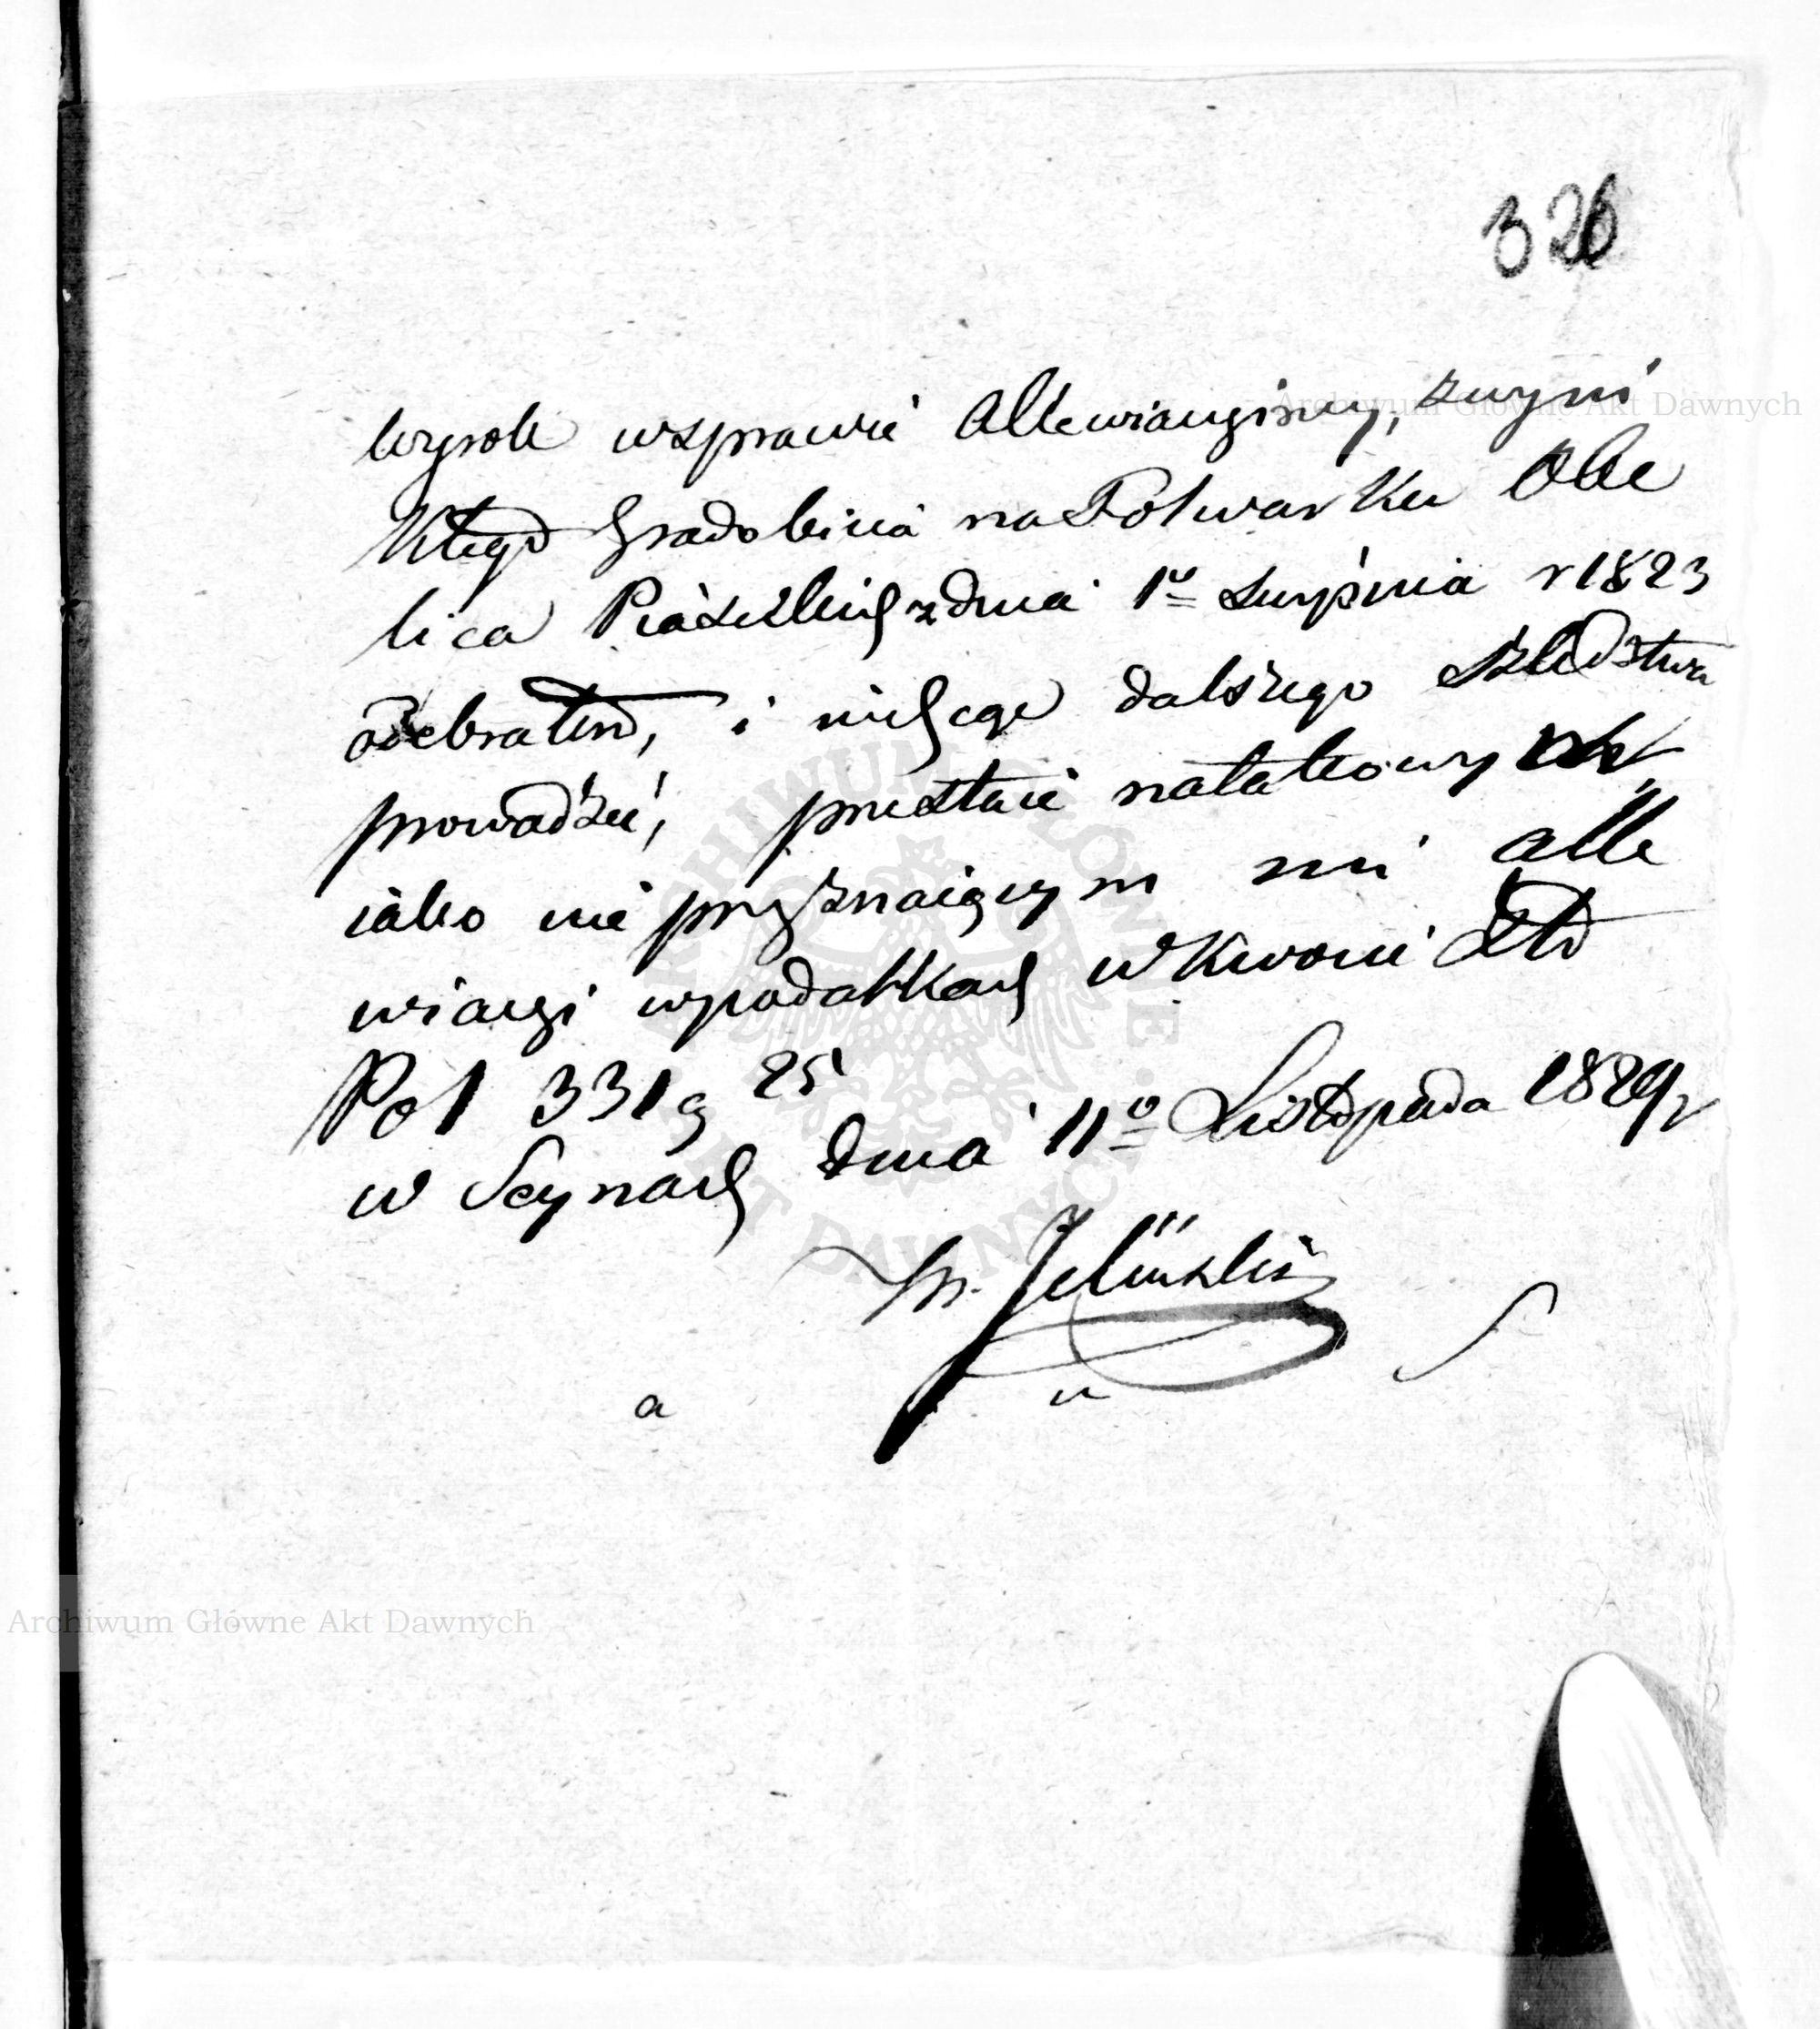 326
Wyrok wsprawie Allewiacyiney, zwyni
Kłego Gradobicia na Folwarku Obe
lica Piaseckich z dnia 1º Sierpnia r 1823
odebrałem, i niechcąc dalszego śledztwa
prowadzić, przestaię na takowych
iako nie przyznaiącym mi alle
wiacyi wpodatkach w Kwocie Złł
Pol 331 g 25
w Seynach dnia 11º Listopada 1829 r
Jeliński
a
Archiwum Główne Akt Dawnych
Archiwum Główne Akt Dawnych
ARCHIWUM GŁÓWNE AKT DAWNYCH